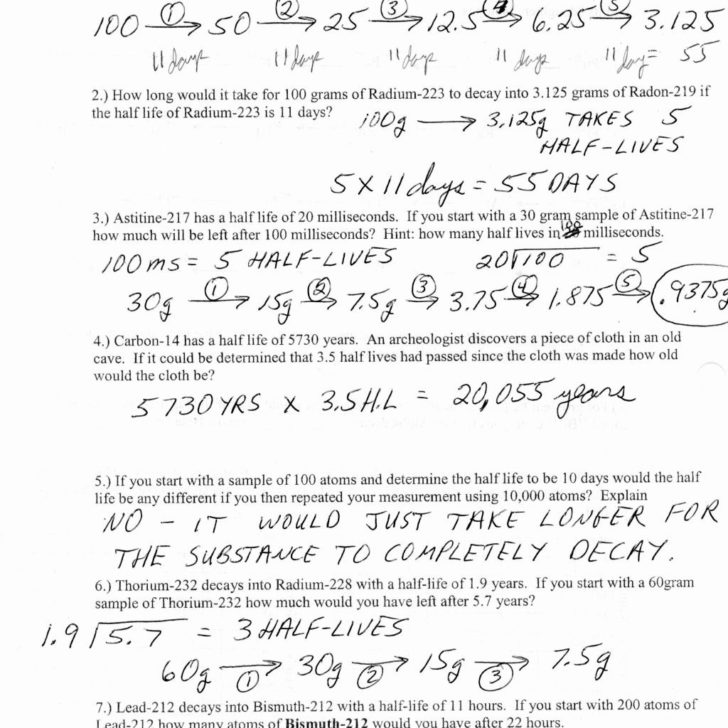 100 ① → 50 ② → 25 ③ → 12.5 ④ → 6.25 ⑤ → 3.125
11 days 11 days 11 days 11 days 11 days = 55
2.) How long would it take for 100 grams of Radium-223 to decay into 3.125 grams of Radon-219 if
the half life of Radium-223 is 11 days? 100g → 3.125g TAKES 5
HALF-LIVES
5 X 11 days = 55 DAYS
3.) Astitine-217 has a half life of 20 milliseconds. If you start with a 30 gram sample of Astitine-217
how much will be left after 100 milliseconds? Hint: how many half lives in 100 milliseconds.
100 ms = 5 HALF-LIVES 20⟌100 = 5
30g ① → 15g ② → 7.5g ③ → 3.75 ④ → 1.875 ⑤ → .9375g
4.) Carbon-14 has a half life of 5730 years. An archeologist discovers a piece of cloth in an old
cave. If it could be determined that 3.5 half lives had passed since the cloth was made how old
would the cloth be?
5730 YRS X 3.5 H.L = 20,055 years
5.) If you start with a sample of 100 atoms and determine the half life to be 10 days would the half
life be any different if you then repeated your measurement using 10,000 atoms? Explain
NO - IT WOULD JUST TAKE LONGER FOR
THE SUBSTANCE TO COMPLETELY DECAY.
6.) Thorium-232 decays into Radium-228 with a half-life of 1.9 years. If you start with a 60gram
sample of Thorium-232 how much would you have left after 5.7 years?
1.9⟌5.7 = 3 HALF-LIVES
60g → ① 30g → ② 15g → ③ 7.5g
7.) Lead-212 decays into Bismuth-212 with a half-life of 11 hours. If you start with 200 atoms of
Lead-212 how many atoms of Bismuth-212 would you have after 22 hours.